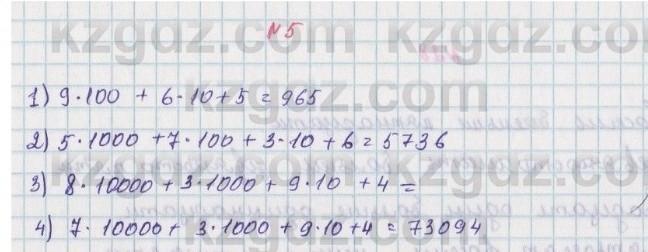 kzgdz.com kzgdz.com
№5
1) 9·100 + 6·10+5 = 965
2) 5·1000 +7·100 + 3·10 + 6 = 5736
3) 8·10000 + 3·1000 + 9·10 + 4 =
4) 7·10000 + 3·1000 + 9·10+4 = 73094